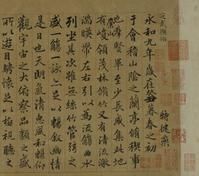 特健藥
永和九年歲在癸丑暮春之初
會于會稽山陰之蘭亭脩稧事
也群賢畢至少長咸集此地
有峻領茂林脩竹又有清流激
湍暎帶左右引以為流觴曲水
列坐其次雖無絲竹管弦之
盛一觴一詠亦足以暢敘幽情
是日也天朗氣清惠風和暢仰
觀宇宙之大俯察品類之盛
所以遊目騁懷足以極視聽之